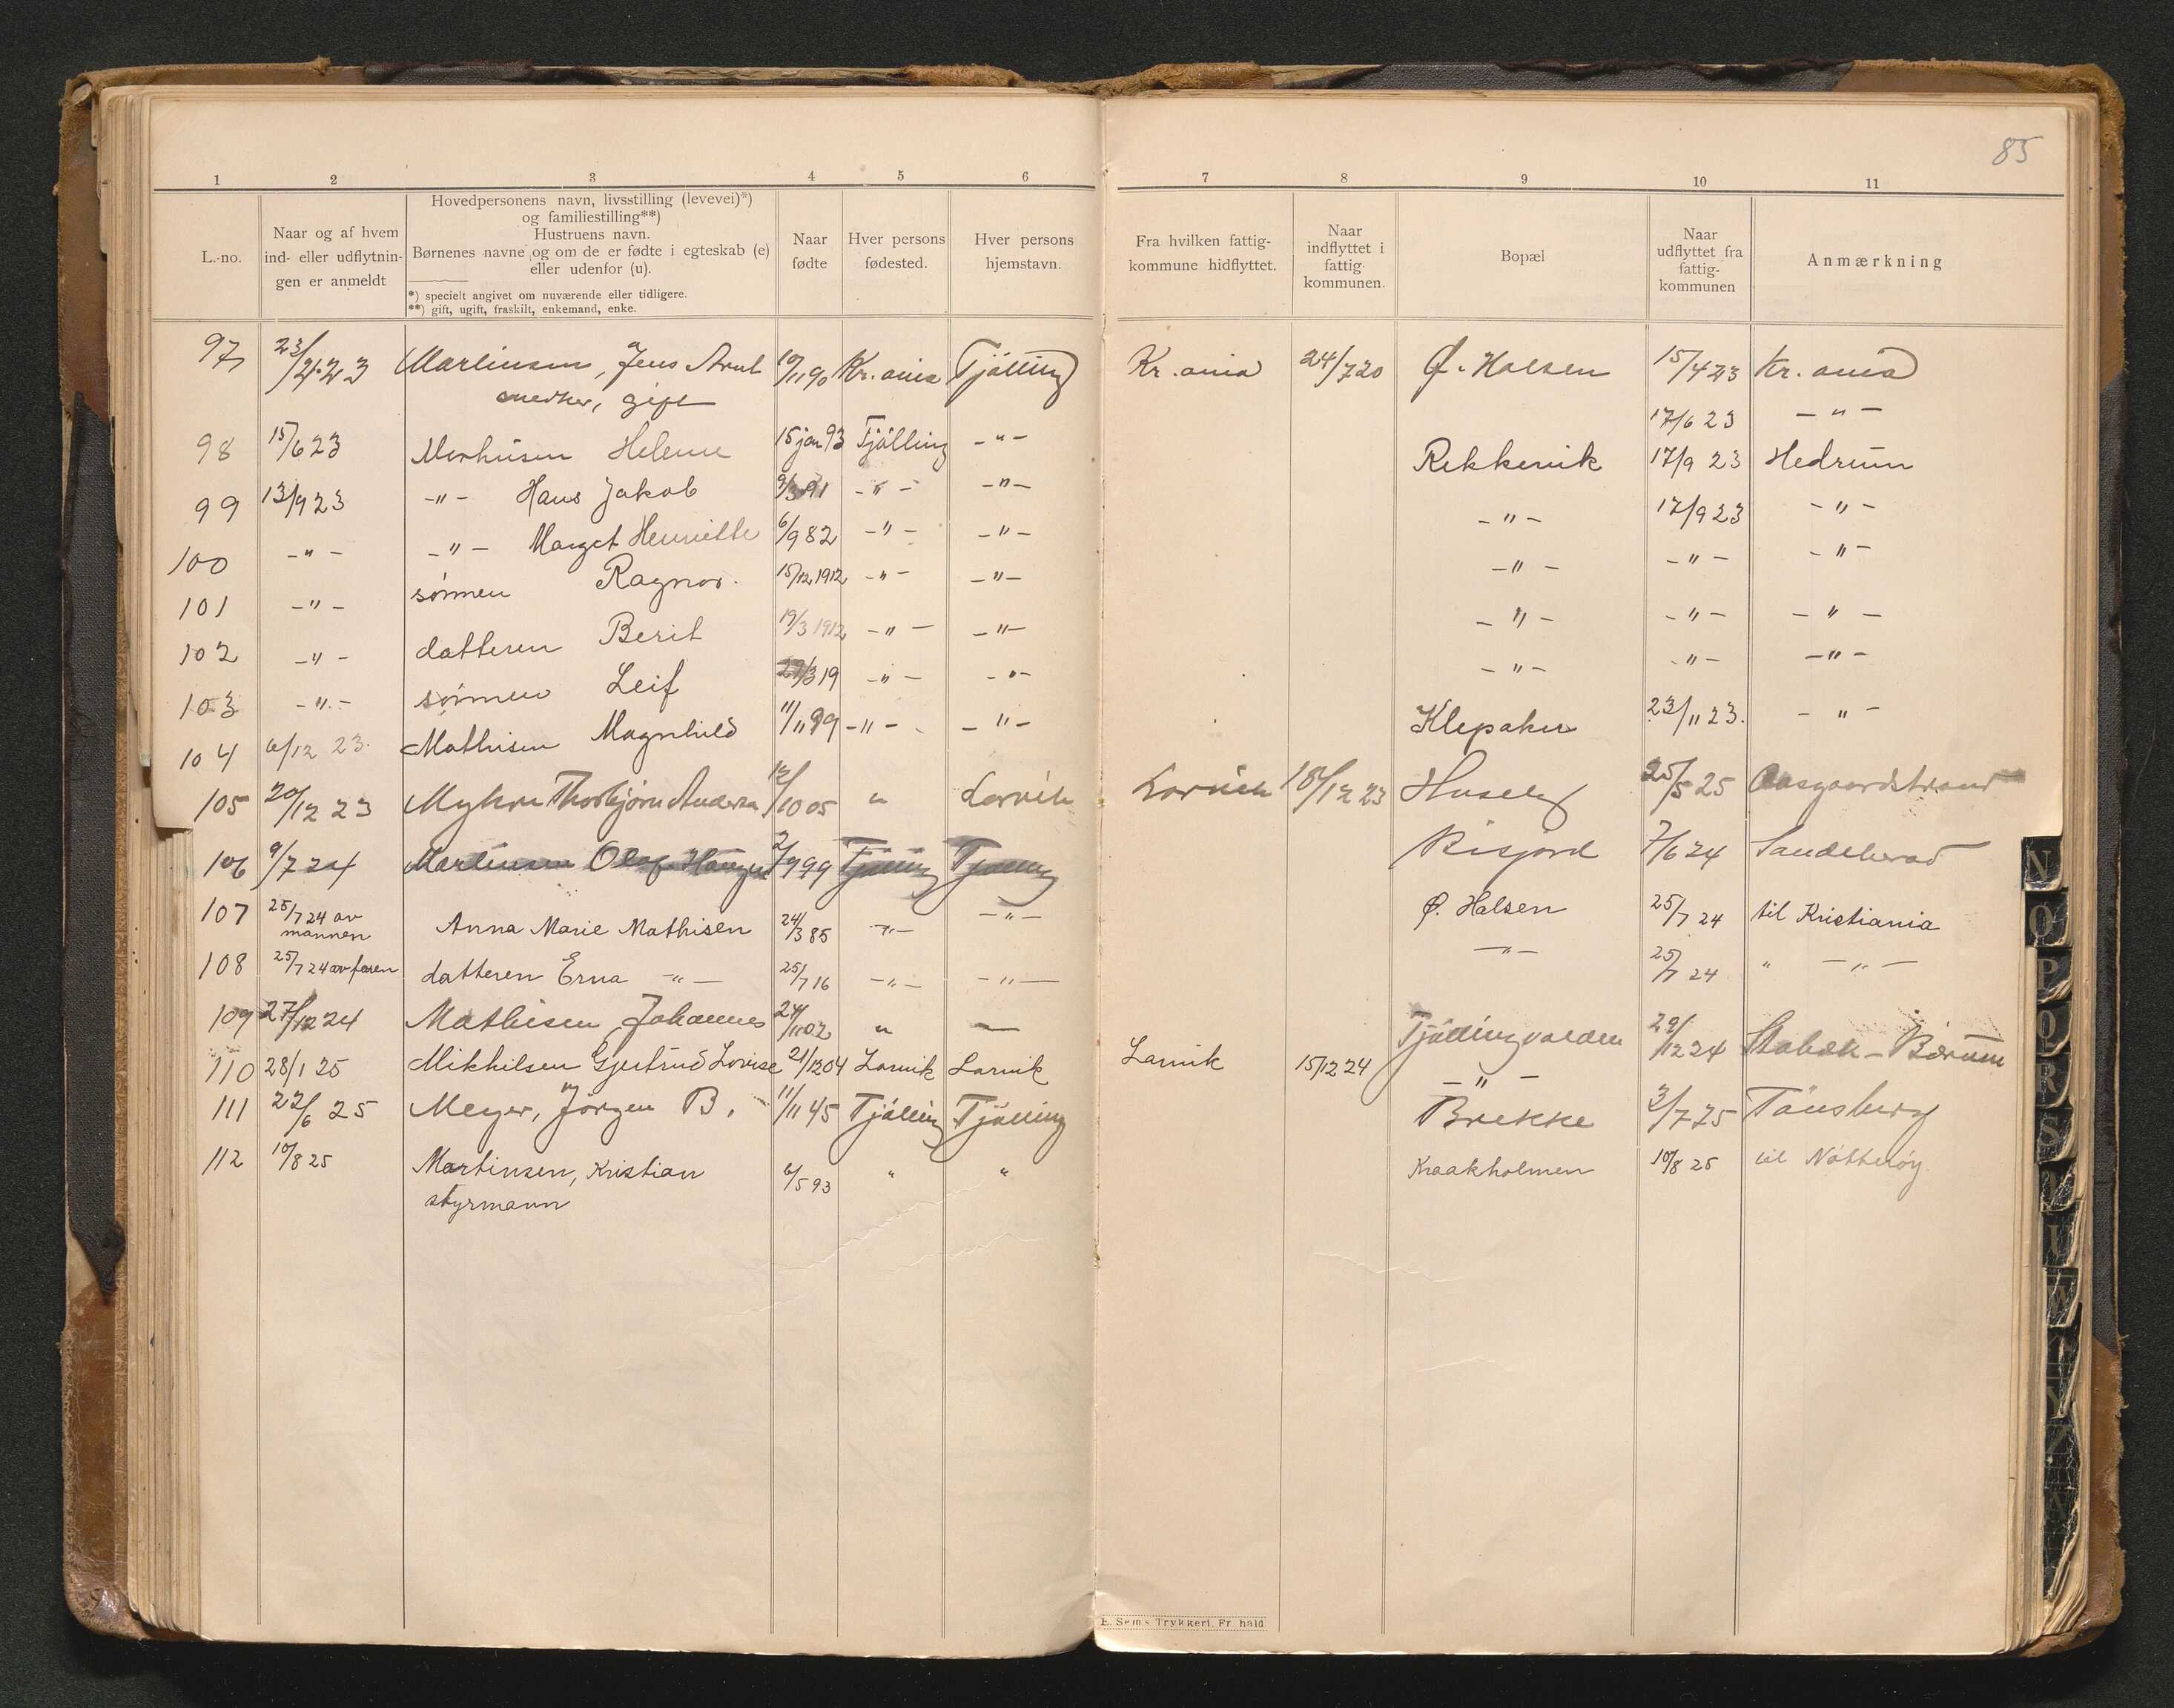 85
1 2 3 4 5 6 7 8 9 10 11
L.-no.
Naar og af hvem
ind- eller udflytnin-
gen er anmeldt
Hovedpersonens navn, livsstilling (levevei)*)
og familiestilling**)
Hustruens navn.
Børnenes navne og om de er fødte i egteskab (e)
eller udenfor (u).
*) specielt angivet om nuværende eller tidligere.
**) gift, ugift, fraskilt, enkemand, enke.
Naar
fødte
Hver persons
fødested.
Hver persons
hjemstavn.
Fra hvilken fattig-
kommune hidflyttet.
Naar
indflyttet i
fattig-
kommunen.
Bopæl
Naar
udflyttet fra
fattig-
kommunen
Anmærkning
97 23/4 23 Martinsen, Jens Arnt 10/11 90 Kr.ania Tjölling Kr.ania 24/7 20 Ø. Halsen 15/4 23 Kr.ania
snedker, gift
17/6 23 -"-
98 15/6 23 Helene 15 jan 93 Tjölling -"-
Rekkevik 17/9 23 Hedrum
99 13/9 23 -"- Hans Jakob 91 -"- -"-
-"- 17/9 23 -"-
100 -"- -"- Marget Henriette 6/9 82 -"- -"-
-"- -"- -"-
101 -"- sönnen Ragnar. 15/12 1912 -"- -"-
-"- -"- -"-
102 -"- datteren Berit 19/3 1912 -"- -"-
-"- -"- -"-
103 -"- sönnen Leif 27/3 19 -"- -"-
Klepaker 23/11 23. -"-
104 6/12 23. Mathisen Magnhild 11/11 99 -"- -"-
105 20/12 23 Thorbjørn Andersen 12/10 05 " Larvik Larvik 18/12 23 Huseby 25/5 25 Aasgaardstrand
106 9/7 24 Martinsen Olaf 2/9 99 Tjölling Tjölling Risjord 7/6 24 Sandeherad
107 25/7 24 av Anna Marie Mathisen 24/3 85 -"- -"- Ø. Halsen 25/7 24 til Kristiania
mannen
108 25/7 24 av faren datteren Erna -"- 25/7 16 -"- -"- -"- 25/7 24 " -"-
109 27/12 24 Mathisen, Johannes 24/11 02 " — Tjöllingvolden 29/12 24 Stabæk - Bærum
110 28/1 25 Mikkelsen Gjertrud Lovise 21/12 04 Larvik Larvik Larvik 15/12 24 -"-
111 22/6 25 Meyer, Jörgen B. 11/11 45 Tjölling Tjölling Brekke 3/7 25 Tönsberg
112 10/8 25 Martinsen, Kristian 6/5 93 " " Kraakholmen 10/8 25 til Nötteröy
styrmann
E. Sem's Trykkeri, Fr.hald
N
O
P
Q
R
S
T
U
W
Y
Z